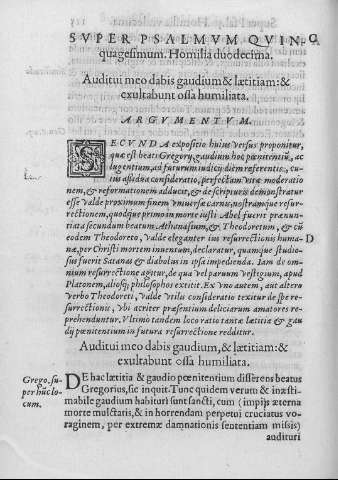 SVPER PSALMVM QVIN- C
quagesimum. Homilia duodecima.
Auditui meo dabis gaudium & lætitiam: &
exultabunt ossa humiliata.
ARGVMENTVM.
SECVNDA expositio huius versus proponitur,
quæ est beati Gregorij, gaudium hoc pœnitentiũ, ac
lugentium, ad futurum iudicij diem referentis, cu-
ius assidua consideratio, perfectam vitæ moderatio
nem, & reformationem adducit, & de scripturis demonstratur
esse valde proximum finem vniuersæ carnis, nostramque resur-
rectionem, quodque primo in morte iusti Abel fuerit prænun-
tiata secundum beatum Athanasium, & Theodoretum, & cũ
eodem Theodoreto, valde eleganter ius resurrectionis huma- D
næ, per Christi mortem inuentum, declaratur, quamque studio-
sus fuerit Satanas & diabolus in ipsa impedienda. Iam de om-
nium resurrectione agitur, de qua vel paruum vestigium, apud
Platonem, aliosq; philosophos extitit. Ex vno autem, aut altero
verbo Theodoreti, valde vtilis consideratio texitur de spe re-
surrectionis, vbi acriter præsentium deliciarum amatores re-
prehenduntur. Vltimo tandem loco ratio tantæ lætitiæ & gau
dij pœnitentium in futura resurrectione redditur.
Auditui meo dabis gaudium, & lætitiam: &
exultabunt ossa humiliata.
Grego. su-
per hũc lo-
cum.
DE hac lætitia & gaudio pœnitentium disserens beatus
Gregorius, sic inquit. Tunc quidem verum & inæsti-
mabile gaudium habituri sunt sancti, cum (impijs æterna
morte mulctatis, & in horrendam perpetui cruciatus vo-
raginem, per extremæ damnationis sententiam missis)
auditui